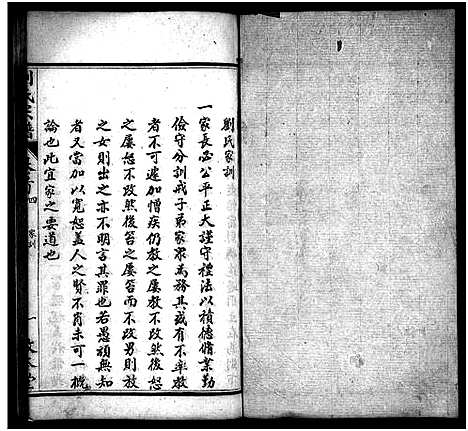 劉氏家訓
一家長必公平正大謹守禮法以積德脩業勤
儉守分訓戒子弟家眾為務其或有不率教
者不可遽加憎疾仍教之屢教不改然後怒
之屢怒不改然後笞之屢笞而不改男則放
之女則出之亦不明言其罪也若愚頑無知
者又當加以寬恕蓋人之賢不肖未可一概
論也此宜家之要道也
氏宗譜
卷首四
家訓
一